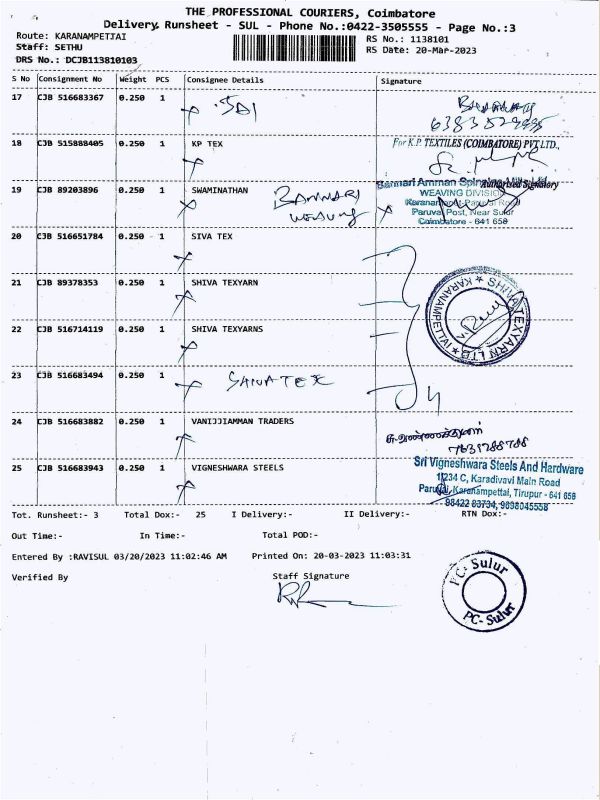 THE PROFESSIONAL COURIERS, Coimbatore
Delivery Runsheet - SUL - Phone No.:0422-3505555 - Page No.:3
Route: KARANAMPETTAI
RS No.: 1138101
Staff: SETHU
RS Date: 20-Mar-2023
DRS No.: DCJB113810103
S No Consignment No Weight PCS Consignee Details Signature
17 CJB 516683367 0.250 1 SAI
18 CJB 515888405 1 0.250 1 KP TEX
For K.P. TEXTILES (COIMBATORE) PVT.LTD.,
Authorised Signatory
19 CJB 89203896 0.250 1 SWAMINATHAN BANNARI
Bannari Amman Spinning Mills Ltd
WEAVING DIVISION
Karanampet-Paruvai Road
Paruva Post, Near Sulur
Coimbatore - 641 658
20 CJB 516651784 0.250 - 1 SIVA TEX
21 CJB 89378353 0.250 1 SHIVA TEXYARN
SHIVA TEXYARN LTD
KARANAMPETTAI
22 CJB 516714119 0.250 1 SHIVA TEXYARNS
23 CJB 516683494 0.250 1
24 CJB 516683882 0.250 1 VANIJJIAMMAN TRADERS
25 CJB 516683943 0.250 1 VIGNESHWARA STEELS
Sri Vigneshwara Steels And Hardware
1/234 C, Karadivavi Main Road
Karanampettai, Tirupur - 641 658
98422 83734, 9698045558
Tot. Runsheet:- 3 Total Dox:- 25 I Delivery:- II Delivery:- RTN Dox:-
Out Time:- In Time:- Total POD:-
Entered By :RAVISUL 03/20/2023 11:02:46 AM Printed On: 20-03-2023 11:03:31
Verified By Staff Signature
PC- Sulur
PC- Sulur